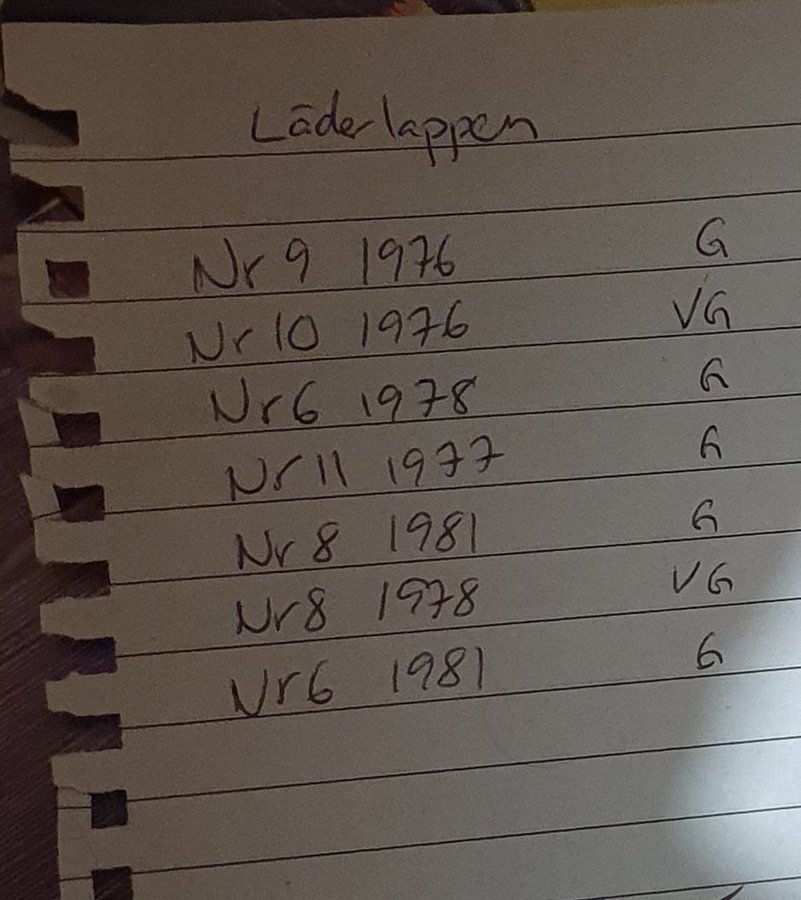 Läderlappen
Nr 9 1976 G
Nr 10 1976 VG
Nr 6 1978 G
Nr 11 1977 G
Nr 8 1981 G
Nr 8 1978 VG
Nr 6 1981 G